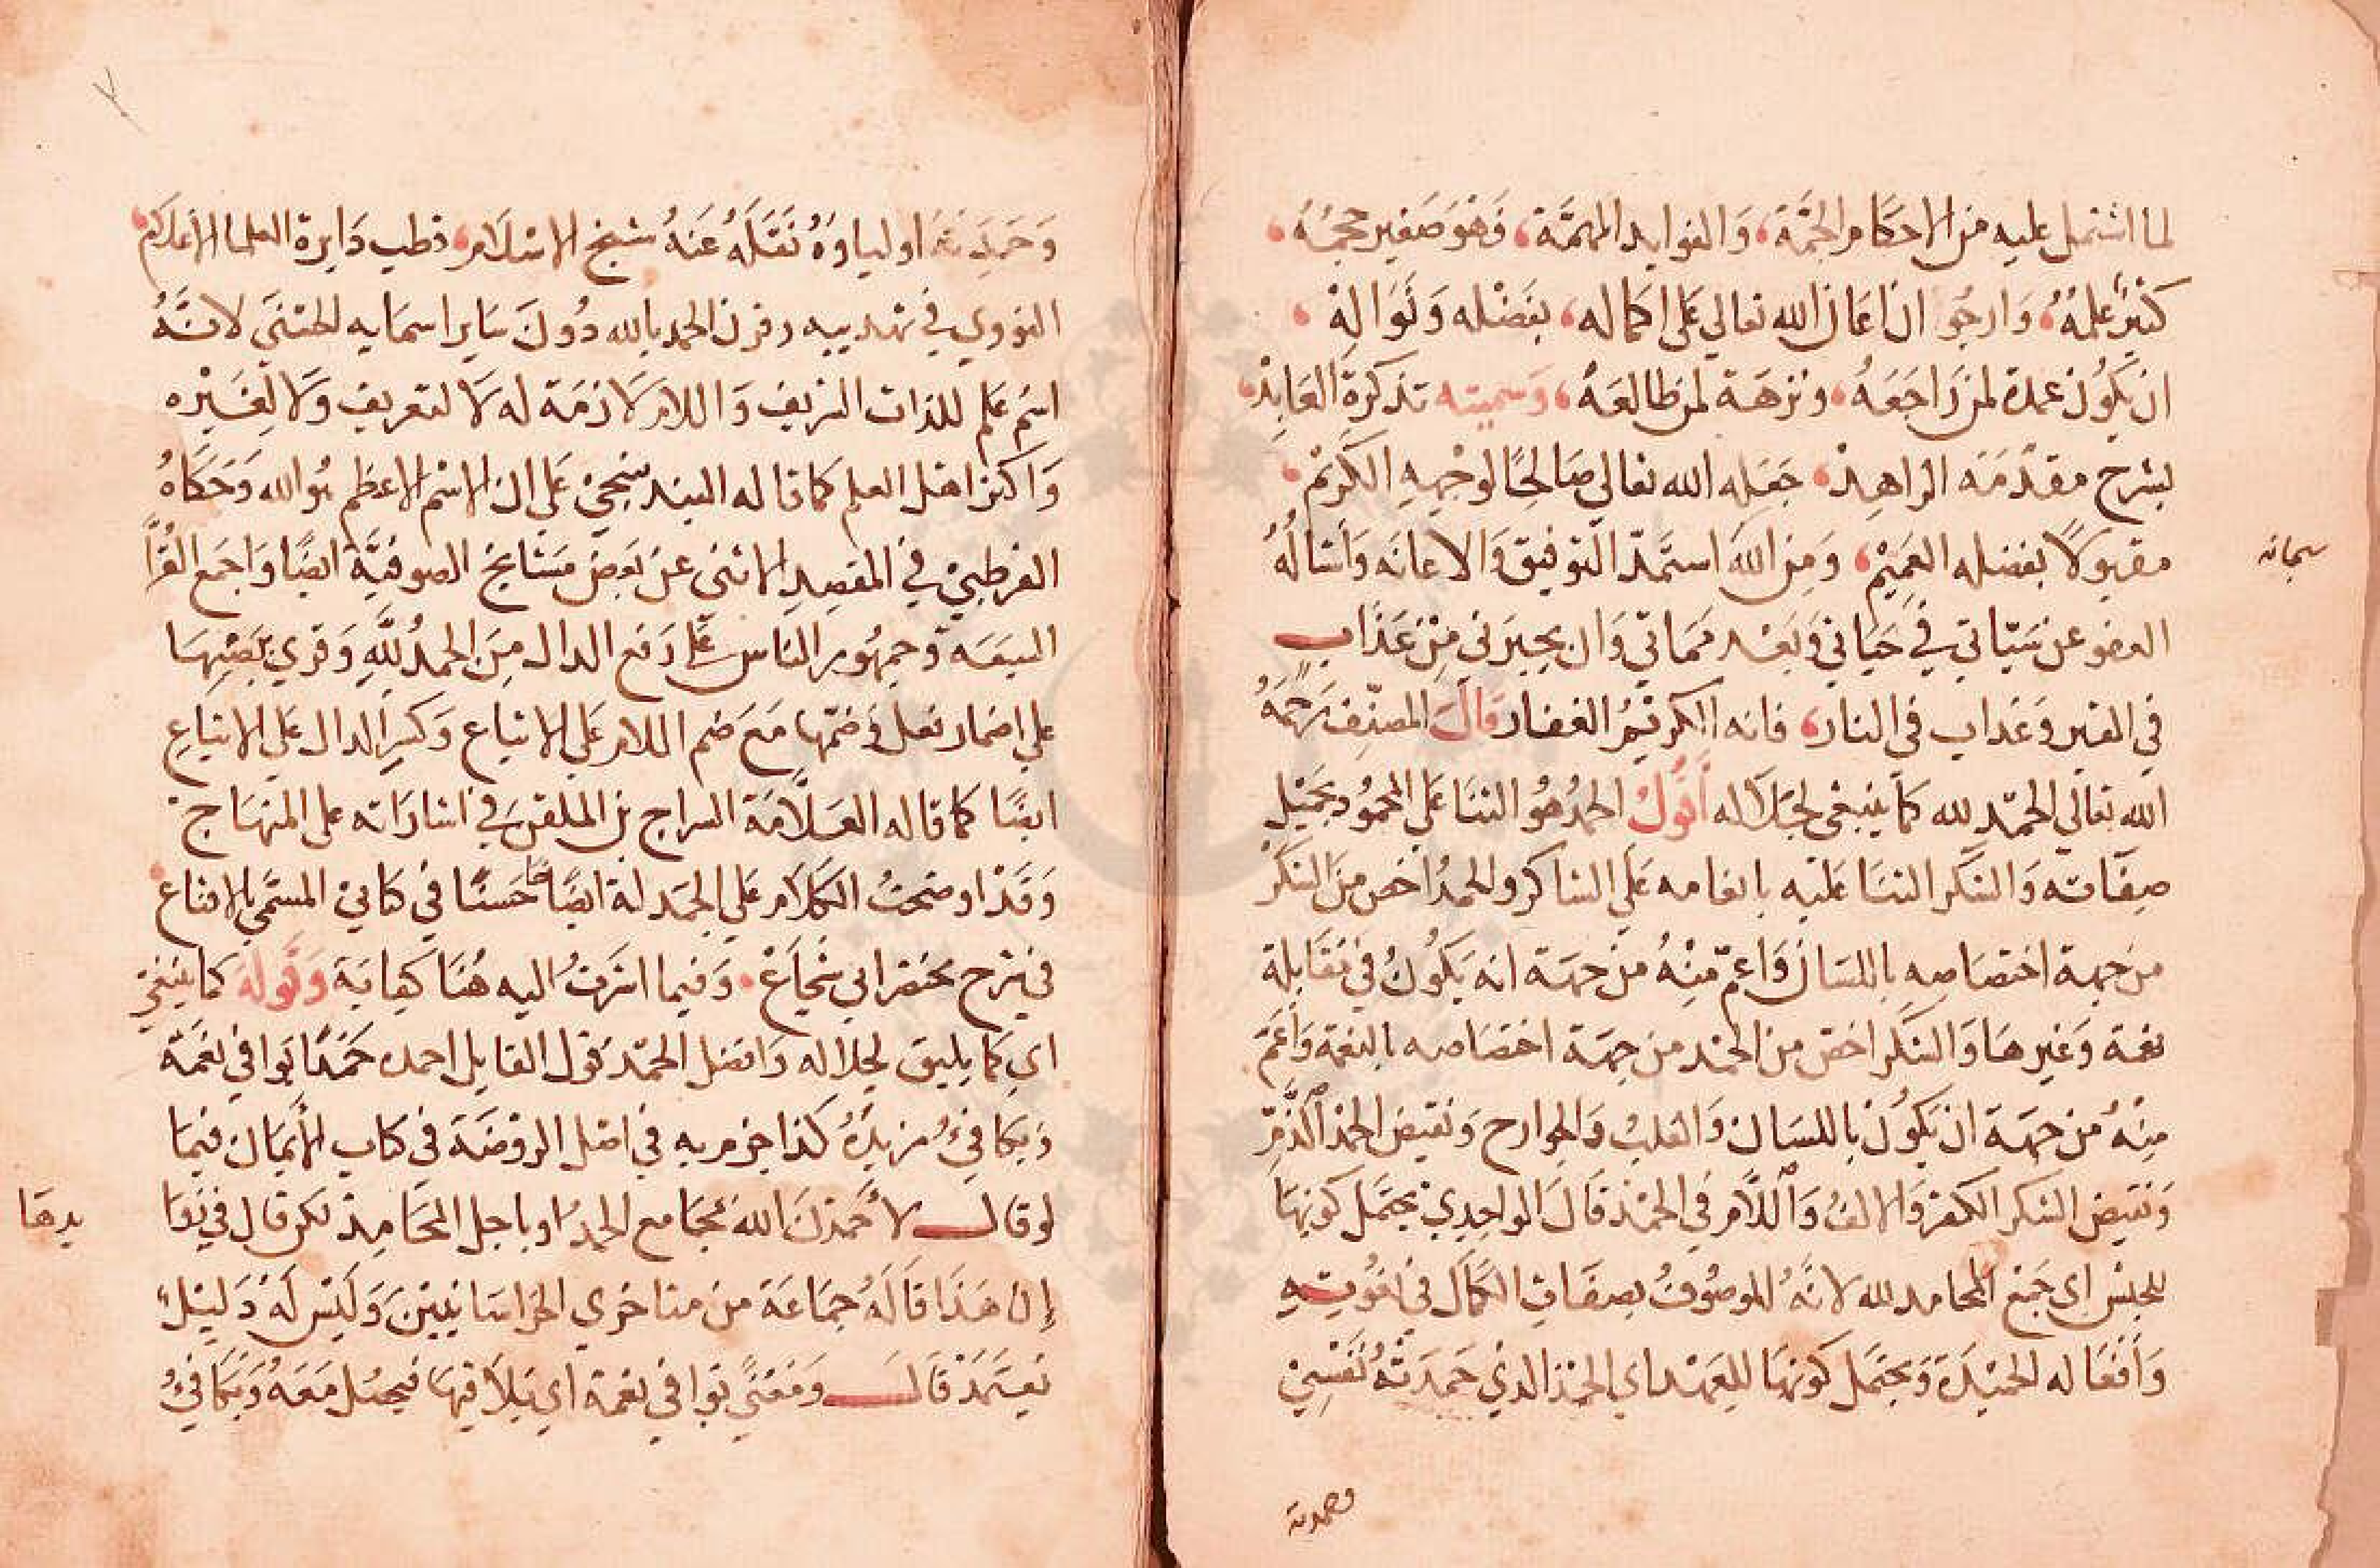 لما اشتمل عليه من الاحكام الجمَّة، وَالفوايد المهمَّة، وَهوَ صَغير حجمُه،
كثيرٌ علمُهُ، وَارجُو ان اعَان الله تعالي عَلي اكماله، بفَضْله وَنَوَالِهْ،
ان يكوُن عمدة لمن رَاجَعَهُ، ونزهَة لمن طَالعَهُ، وَسميته تذكرة العَابِدْ،
بشرح مقدّمَة الزاهِدْ، جَعَله الله تعالي صَالحًا لوَجْهِهِ الكَريْم،
مقبوُلاً بفضله العَمِيْمْ، وَمِن اللهَ استَمدّ التوفيق وَالاعانَه وَأسَالُهُ
سبحانه
العفو عن سَيّاتي في حَيَاتي وَبَعْد ممَاتي وَان يجيرَني مِنْ عَذَاب
في القبر وَعَذاب في النار، فانه الكريْمُ الغفار قَالَ المصنِّف رَحمَهُ
الله تعَالي الحَمْد لله كمَا ينبَغي لجَلاَله أَقُولُ الحمدُ هُو الثنَا عَلَي المحموُد بجَمِيْلِ
صِفَاته وَالشكر الثنَا عَليْه بانعَامه عَلَي الشاكر والحمدُ اخَص مِنَ الشكر
من جهة اختصَاصِه باللسَان وَاعمّ مِنْهُ من جهَة انه يَكُونُ في مُقَابلة
نعمَة وَغَيرهَا وَالشكر اخصّ من الحَمْد من جهَة اختصَاصه بالنعْمة وَأعَمّ
مِنْهُ من جهَة ان يَكُون باللسَان وَالقلبُ وَالجوارح وَنقيضُ الحمْد الذَّمّ
وَنقيض الشكر الكفرُ وَالالفُ وَاللاَّم في الحَمْد قَالَ الواحِدِيْ يحتمَل كونهَا
للجنس اي جَميْعُ المحَامد لله لانَّهُ الموصُوفُ بصفَاتِ الكَمَال في نُعُوتِهِ
وَأفعَاله الحَميْدَة وَيحتَمَل كونهَا للِعَهْد اي الحمْد الذي حَمدَ بهُ نَفْسَهُ
وحمدته
وَحَمدَ بهَ اوليَاوهُ نَقَلَهُ عَنهُ شيخ الاسْلاَم، قطب دَايرة العلما الاَعْلاَم،
النووي في تهذيبه وقرن الحمد بالله دُونَ سَاير اسمَايه الحسْنَي لانَّهُ
اسْم عَلم للذات الشريف وَاللام لاَزمَة له لاَ لتعريف وَلاَ لغَيْره
وَاكثر اهْل العلم كما قاله البَندنيجيْ عَلي ان الاسْم الاعظم هُو الله وَحَكَاهُ
القرطبيْ في المقصِد الاسْني عن بَعض مَشَايخ الصوفيَّة ايضًا وَاجمَع القُرَّا
السَبعَة وَجمهُور الناس عَلي رَفع الدال مِنَ الحمدُ للهِ وَقري بنَصْبِهَا
علي اضمار فعل وَضمّها مَع ضم اللام عَلي الاتباع وَكسِر الدال عَلي الاتبَاعِ
ايضًا كما قاله العَلاَّمَة السراج بن الملقن في اشارَاته علي المنهَاج
وَقَدْ اوضحتُ الكلاَم عَلي الحمَدلة ايضًا حَسنًا في كتابيْ المسمّي بالاقناع
في شرح مختصر ابي شجَاعْ، وَفيما اشرَتُ اليه هُنَا كفايَة وَقوله كما ينبَغي
اي كما يليق بجلاله وَافضل الحَمْد قول القايل احمده حَمْدًا يوَافي نعَمَهُ
وَيكَافيُ مزيدَهُ كذا جزم به في اصْل الروْضَة في كتاب الأيمَان فيمَا
لو قال لاَحمدَنَّ الله بمجَامع الحمدْ او باجل المحَامِدْ لكن قال في بَعْـ
يدهَا
إن هَذَا قَالَهُ جمَاعَة من متاخري الخراسَانيينَ وَلَيْسَ لَهُ دَليلُ
يُعتمَدْ قَالَ وَمَعْنَي يوَافي نعمه اي يُلاَقيهَا فيحصُل مَعَهُ وَيكَافيُ